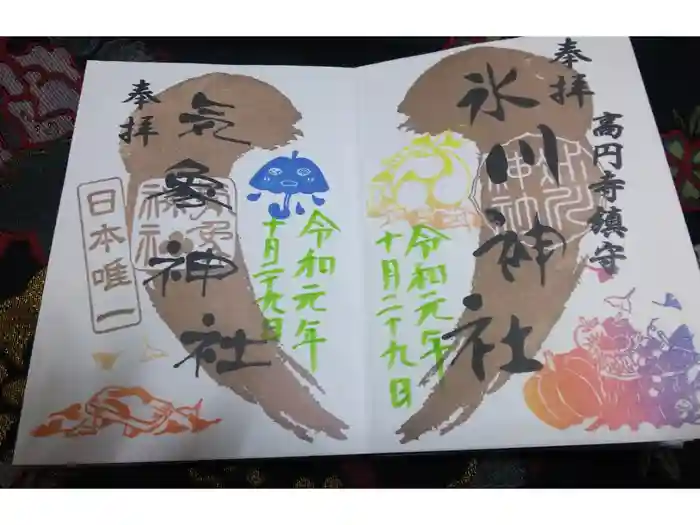 奉拝
氷川神社
高円寺鎮守
令和元年
十月二十九日
奉拝
気象神社
日本唯一
令和元年
十月二十九日